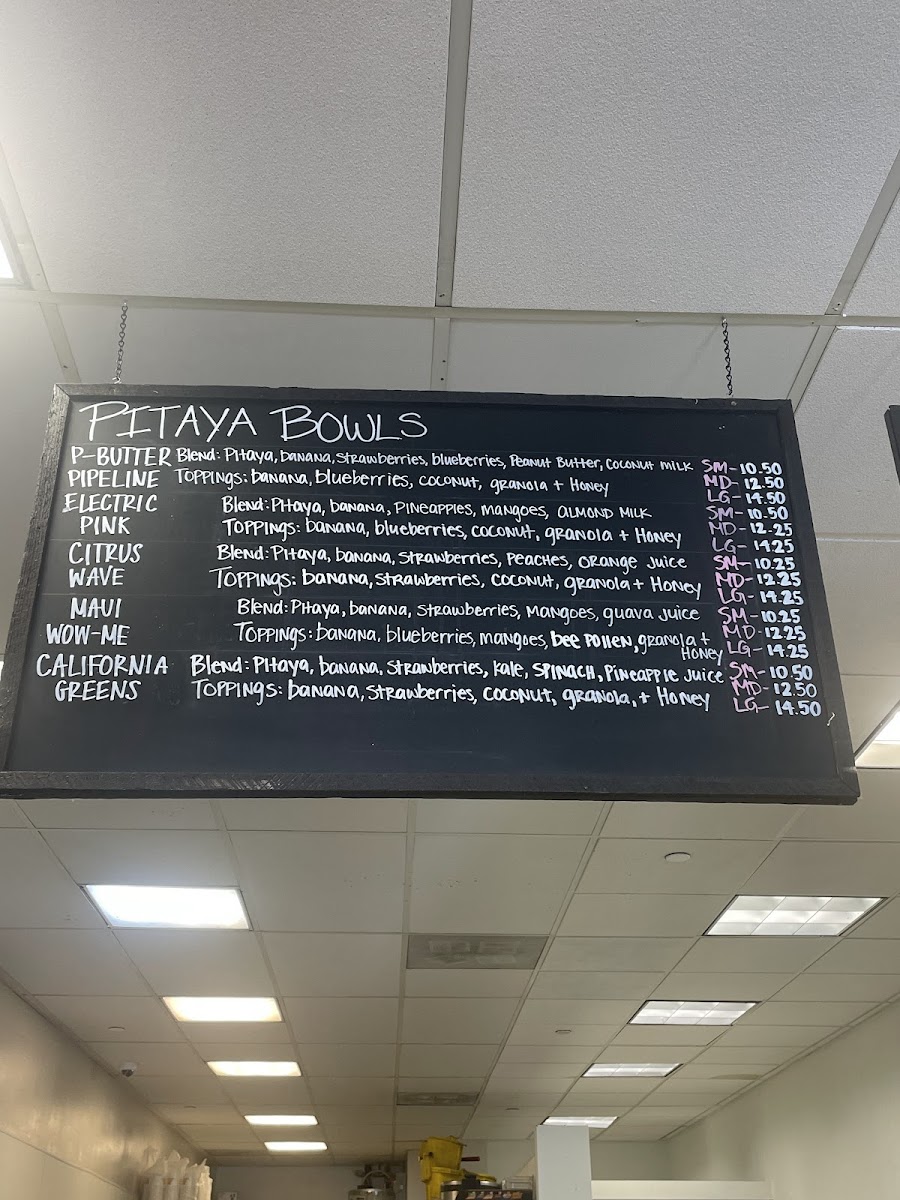 PITAYA BOWLS
P-BUTTER Blend: Pitaya, banana, strawberries, blueberries, Peanut Butter, coconut milk SM- 10.50
PIPELINE TOPPINGS: banana, blueberries, coconut, granola + Honey MD- 12.50
LG- 14.50
ELECTRIC Blend: Pitaya, banana, Pineapples, mangoes, almond milk SM- 10.50
PINK TOPPINGS: banana, blueberries, coconut, granola + Honey MD- 12.25
LG- 14.25
CITRUS Blend: Pitaya, banana, strawberries, Peaches, orange juice SM- 10.25
WAVE TOPPINGS: banana, strawberries, coconut, granola + Honey MD- 12.25
LG- 14.25
MAUI Blend: Pitaya, banana, strawberries, mangoes, guava juice SM- 10.25
WOW-ME TOPPINGS: banana, blueberries, mangoes, bee pollen, granola + MD- 12.25
Honey LG- 14.25
CALIFORNIA Blend: Pitaya, banana, strawberries, kale, spinach, Pineapple juice SM- 10.50
GREENS TOPPINGS: banana, strawberries, coconut, granola, + Honey MD- 12.50
LG- 14.50